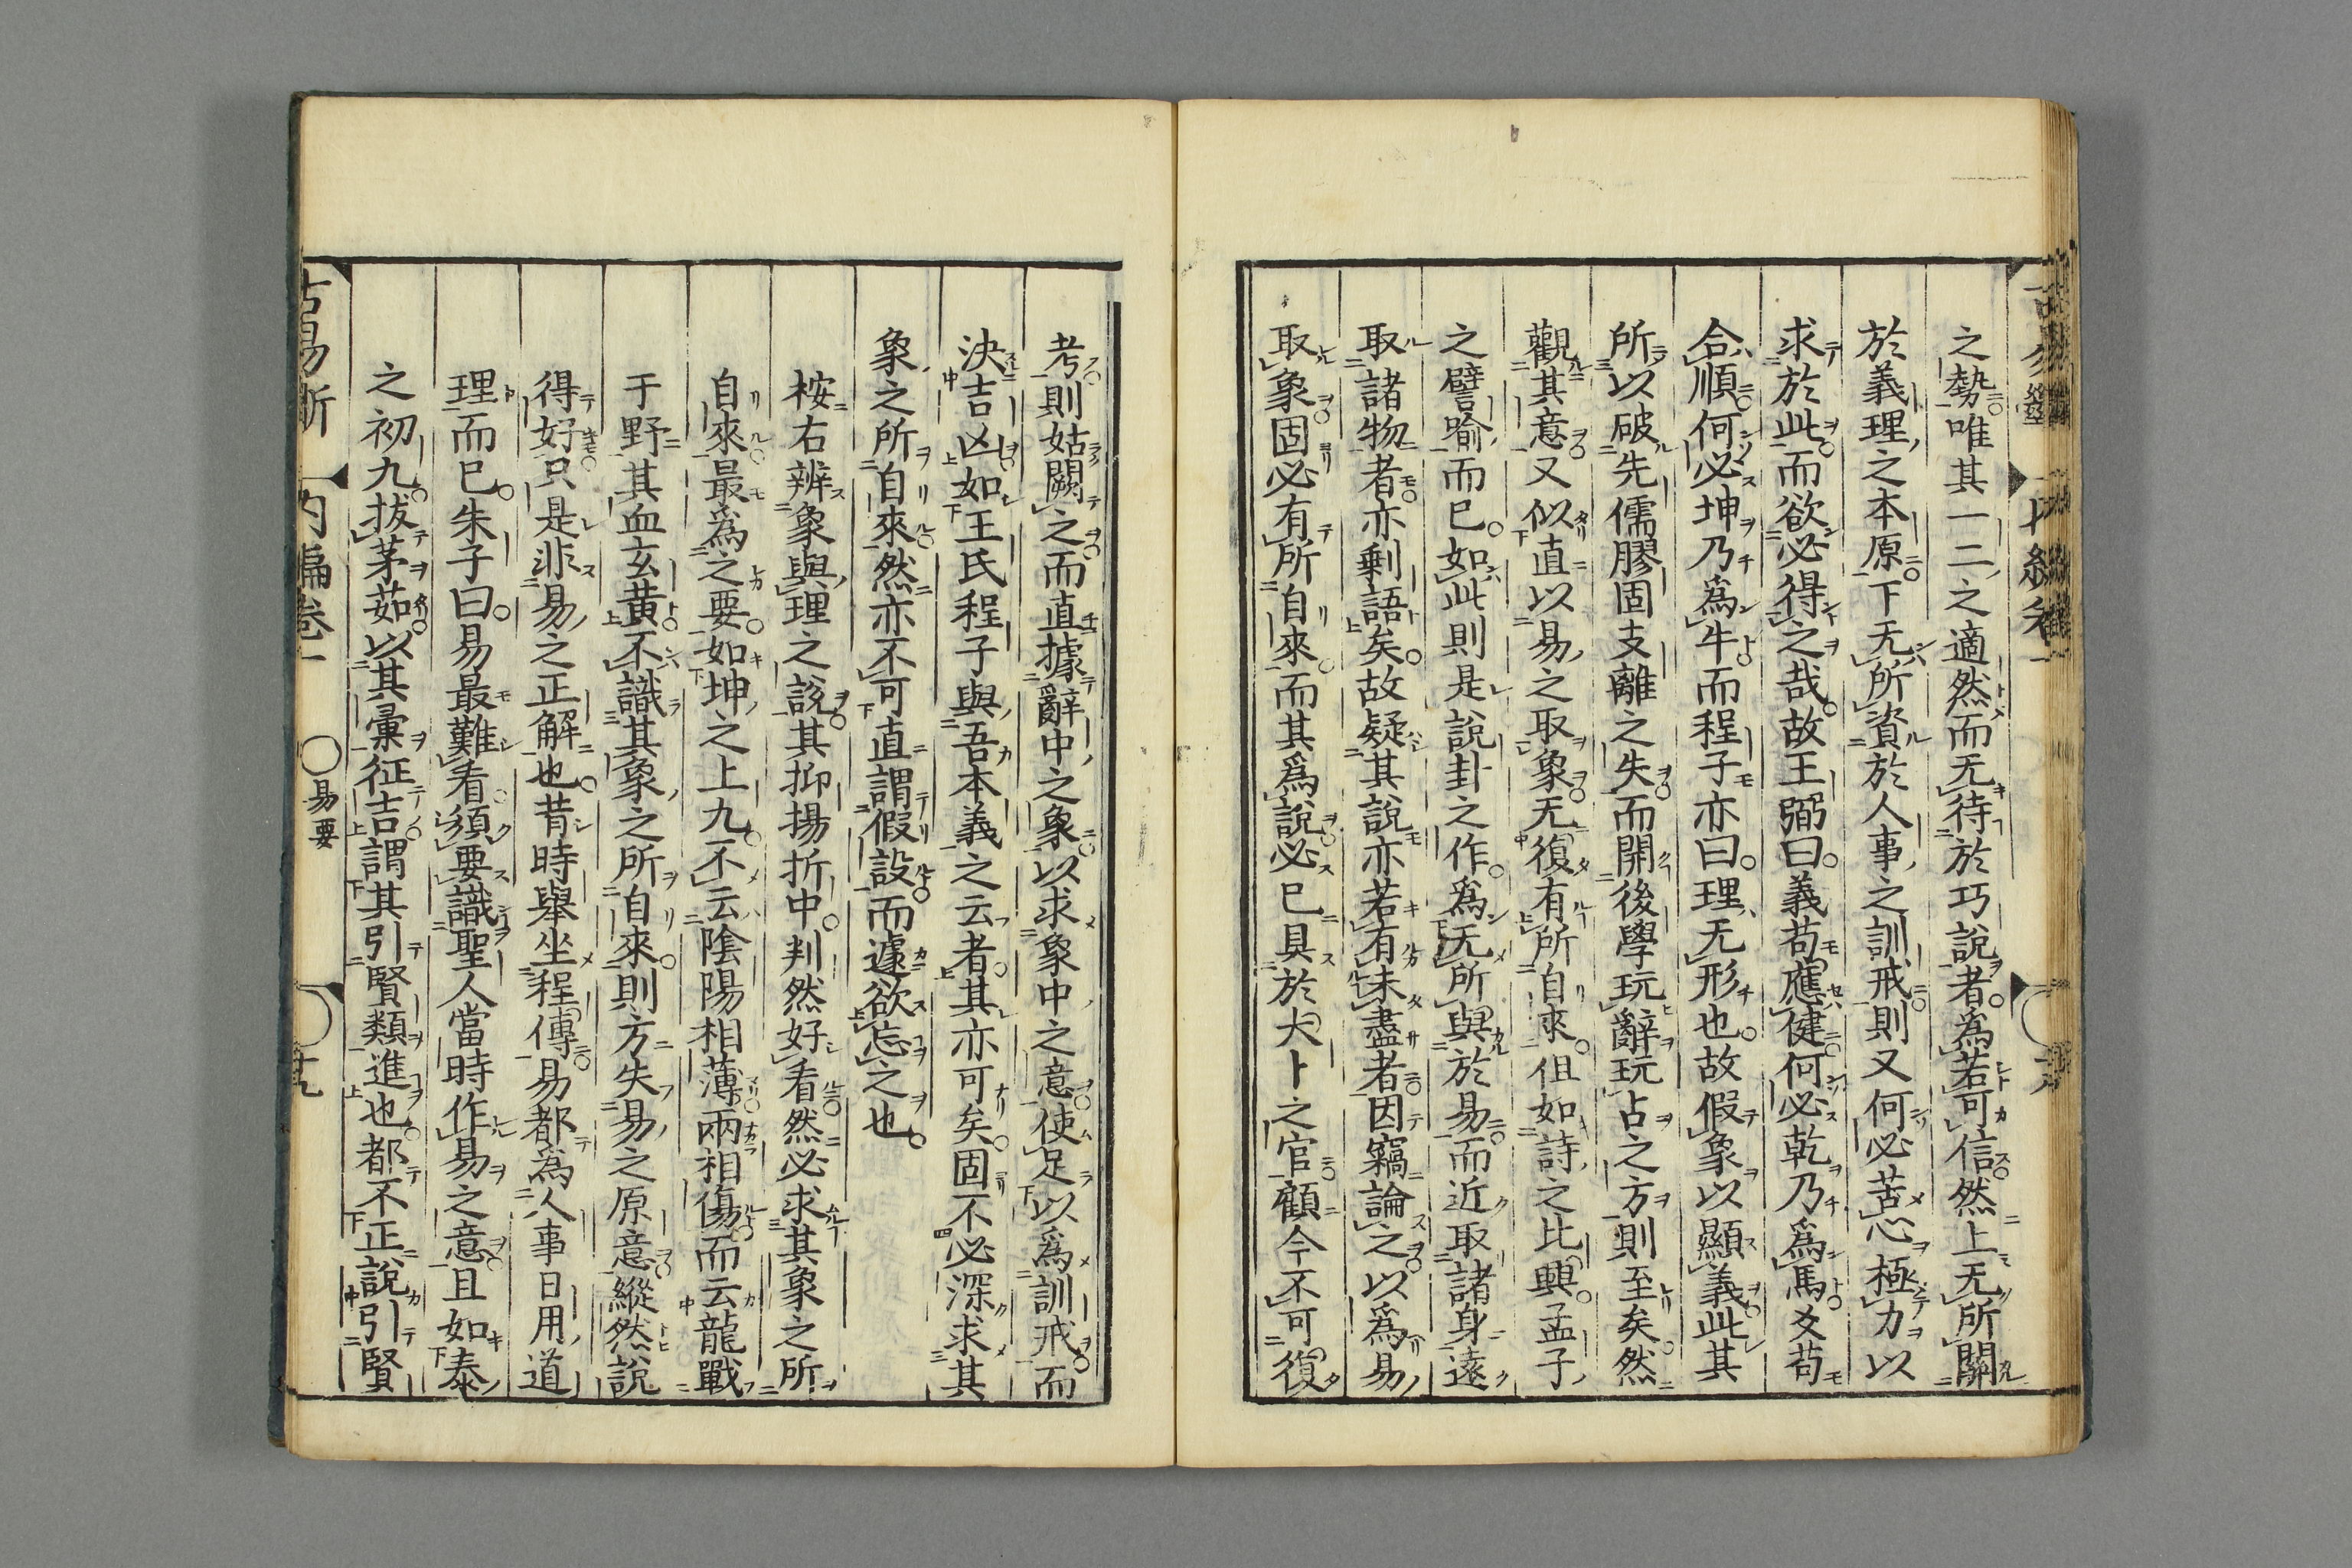 之勢唯其一二之適然而无待於巧說者爲若可信然上无所關
於義理之本原下无所資於人事之訓戒則又何必苦心極力以
求於此而欲必得之哉故王弼曰義苟應健何必乾乃爲馬爻苟
合順何必坤乃爲牛而程子亦曰理无形也故假象以顯義此其
所以破先儒膠固支離之失而開後學玩辭玩占之方則至矣然
觀其意又似直以易之取象无復有所自來但如詩之比興孟子
之譬喻而已如此則是說卦之作爲无所與於易而近取諸身遠
取諸物者亦剩語矣故疑其說亦若有未盡者因竊論之以爲易
取象固必有所自來而其爲說必已具於大卜之官顧今不可復
考則姑闕之而直據辭中之象以求象中之意使足以爲訓戒而
決吉凶如王氏程子與吾本義之云者其亦可矣固不必深求其
象之所自來然亦不可直謂假設而遽欲忘之也
桉右辨象與理之說其抑揚折中判然好看然必求其象之所
自來最爲之要如坤之上九不云陰陽相薄兩相傷而云龍戰
于野其血玄黃不識其象之所自來則方失易之原意縱然說
得好只是非易之正解也昔時舉坐程傳易都爲人事日用道
理而已朱子曰易最難看須要識聖人當時作易之意且如泰
之初九拔茅茹以其彙征吉謂其引賢類進也都不正說引賢
古易斷
內編卷一
易要
十九